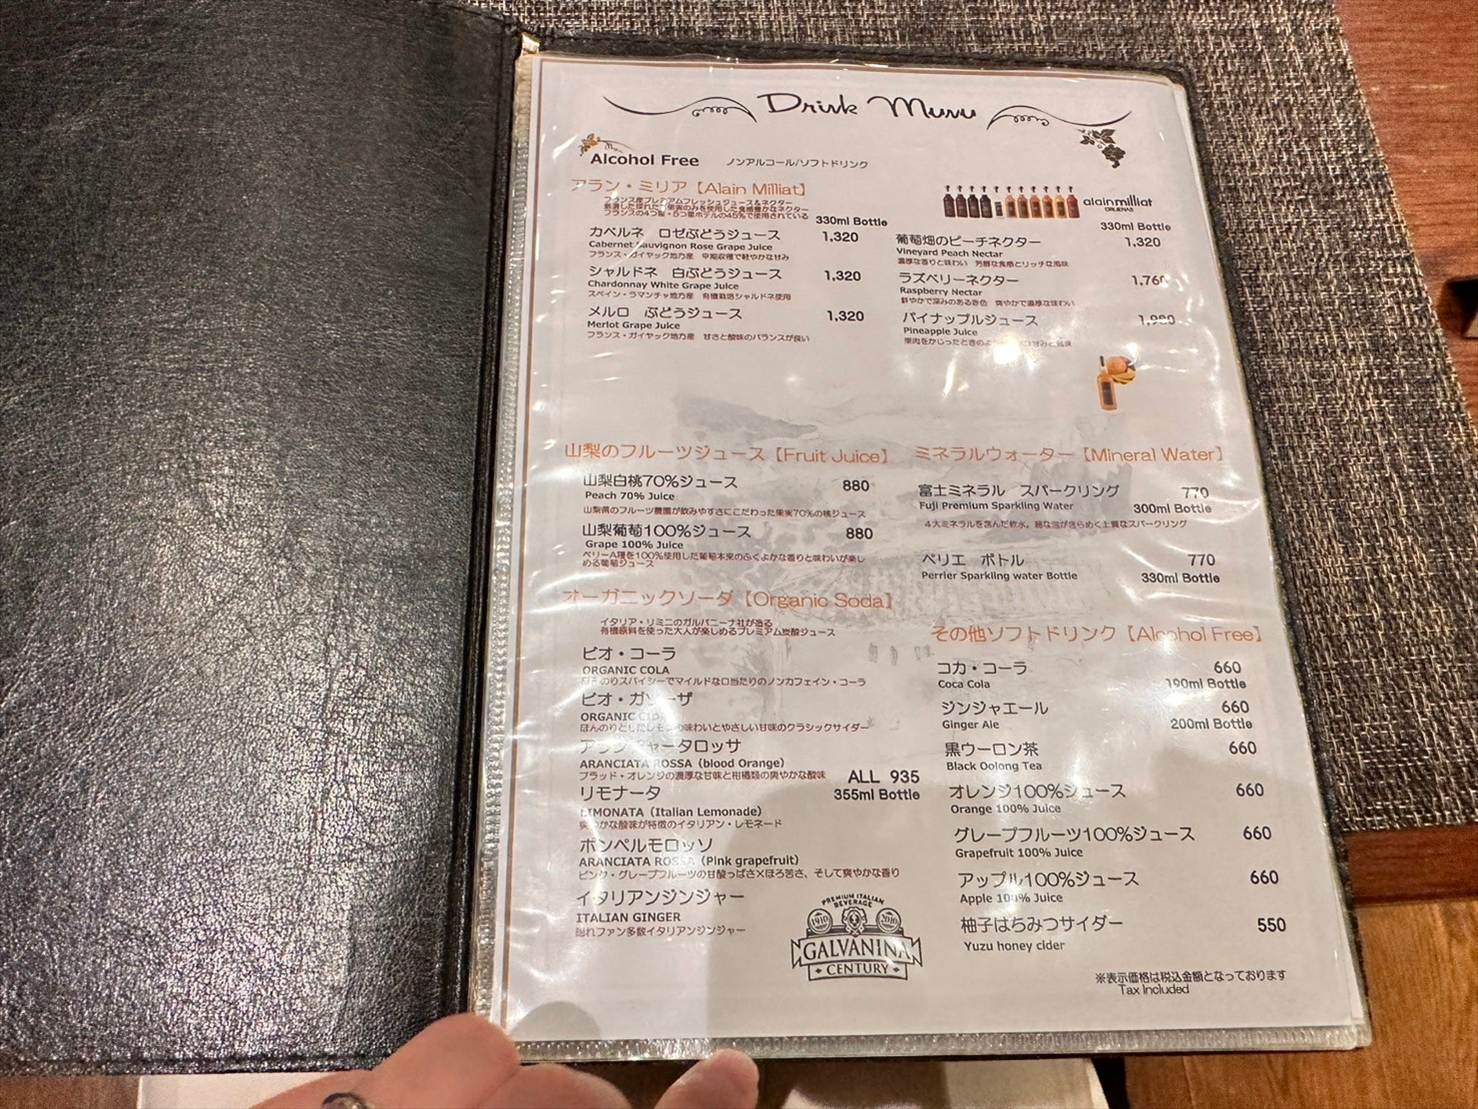 Drink Menu
Alcohol Free ノンアルコール/ソフトドリンク
アラン・ミリア【Alain Milliat】
フランス産プレミアムフレッシュジュース&ネクター
フランスの4つ星・5つ星ホテルの45%で使用されている
330ml Bottle
カベルネ ロゼぶどうジュース 1,320
Cabernet Sauvignon Rose Grape Juice
フランス・ガイヤック地方産 早期収穫で軽やかな甘み
シャルドネ 白ぶどうジュース 1,320
Chardonnay White Grape Juice
スペイン・ラマンチャ地方産 有機栽培シャルドネ使用
メルロ ぶどうジュース 1,320
Merlot Grape Juice
フランス・ガイヤック地方産 甘さと酸味のバランスが良い
alain milliat
330ml Bottle
葡萄畑のピーチネクター 1,320
Vineyard Peach Nectar
濃厚な香りと味わい 芳醇な食感とリッチな風味
ラズベリーネクター 1,760
Raspberry Nectar
鮮やかで深みのある赤色 爽やかで濃厚な味わい
パイナップルジュース 1,980
Pineapple Juice
果肉をかじったときのよ
山梨のフルーツジュース【Fruit Juice】
山梨白桃70%ジュース 880
Peach 70% Juice
山梨県のフルーツ農園が飲みやすさにこだわった果実70%の桃ジュース
山梨葡萄100%ジュース 880
Grape 100% Juice
ベリーA種を100%使用した葡萄本来のふくよかな香りと味わいが楽し
める葡萄ジュース
オーガニックソーダ【Organic Soda】
イタリア・リミニのガルバニーナ社が造る
有機原料を使った大人が楽しめるプレミアム炭酸ジュース
ビオ・コーラ
ORGANIC COLA
のりスパイシーでマイルドな口当たりのノンカフェイン・コーラ
ビオ・ガソーザ
ORGANIC CIDA
ほんのりとしたレモンの味わいとやさしい甘味のクラシックサイダー
アランチャータロッサ
ARANCIATA ROSSA (blood Orange)
ブラッド・オレンジの濃厚な甘味と柑橘類の爽やかな酸味
ALL 935
355ml Bottle
リモナータ
LIMONATA (Italian Lemonade)
爽やかな酸味が特徴のイタリアン・レモネード
ポンペルモロッソ
ARANCIATA ROSSA (Pink grapefruit)
ピンク・グレープフルーツの甘酸っぱさ×ほろ苦さ、そして爽やかな香り
イタリアンジンジャー
ITALIAN GINGER
隠れファン多数イタリアンジンジャー
PREMIUM ITALIAN
BEVERAGE
1910
2010
GALVANINA
CENTURY
ミネラルウォーター【Mineral Water】
富士ミネラル スパークリング 770
Fuji Premium Sparkling Water 300ml Bottle
4大ミネラルを含んだ軟水。細な泡がきらめく上質なスパークリング
ペリエ ボトル 770
Perrier Sparkling water Bottle 330ml Bottle
その他ソフトドリンク【Alcohol Free】
コカ・コーラ 660
Coca Cola 190ml Bottle
ジンジャエール 660
Ginger Ale 200ml Bottle
黒ウーロン茶 660
Black Oolong Tea
オレンジ100%ジュース 660
Orange 100% Juice
グレープフルーツ100%ジュース 660
Grapefruit 100% Juice
アップル100%ジュース 660
Apple 100% Juice
柚子はちみつサイダー 550
Yuzu honey cider
※表示価格は税込金額となっております
Tax Included